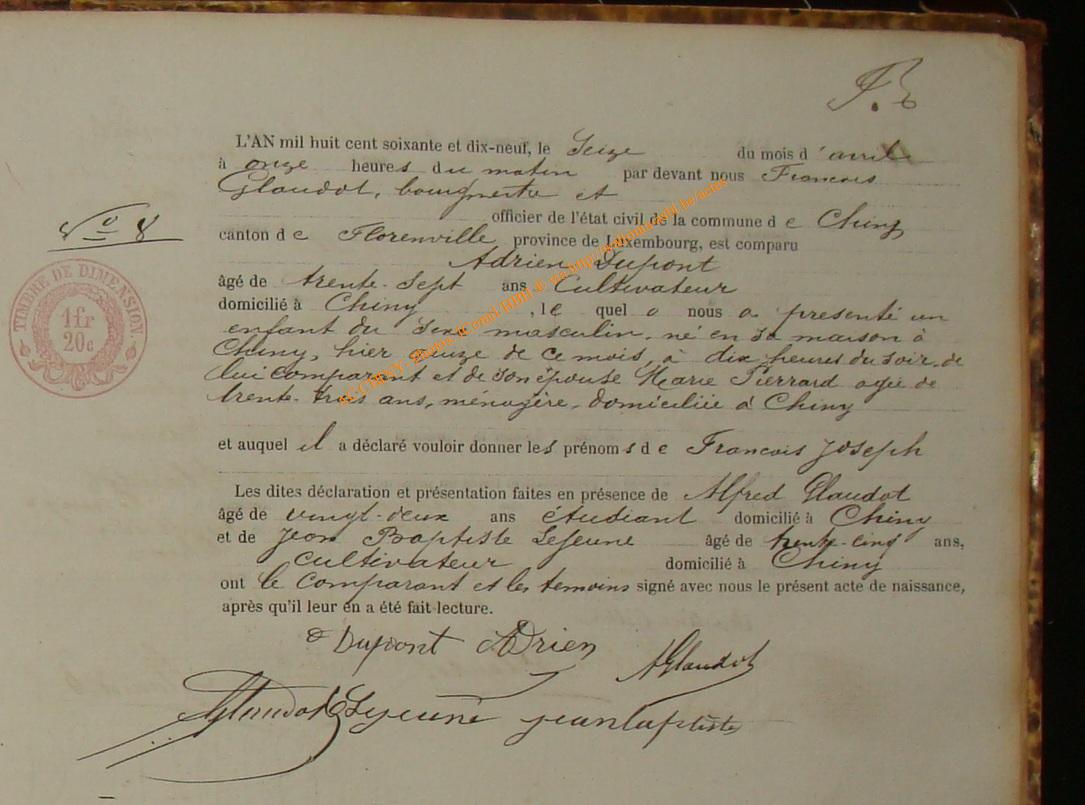 L'AN mil huit cent soixante et dix-neuf, le Seize du mois d'avril
à onze heures du matin par devant nous Francois
Glaudot, bourgmestre et
officier de l'état civil de la commune de Chiny
N° 8
canton de Florenville, province de Luxembourg, est comparu
Adrien Dupont
âgé de trente-sept ans Cultivateur
domicilié à Chiny, lequel a nous a presenté un
TIMBRE DE DIMENSION.
1 fr
20c
enfant du sexe masculin, né en sa maison à
Chiny, hier quinze de ce mois, à dix heures du soir, de
lui comparant et de son épouse Marie Pierrard agée de
trente-trois ans, ménagère, domiciliée à Chiny
et auquel il a déclaré vouloir donner les prénoms de Francois Joseph
Les dites déclaration et présentation faites en présence de Alfred Glaudot
âgé de vingt-deux ans étudiant domicilié à Chiny
et de Jean Baptiste Lejeune âgé de trente-cinq ans,
Cultivateur domicilié à Chiny
ont le Comparant et les temoins signé avec nous le présent acte de naissance,
après qu'il leur en a été fait lecture.
Dupont Adrien
AGlaudot
Glaudot Lejeune jean baptiste